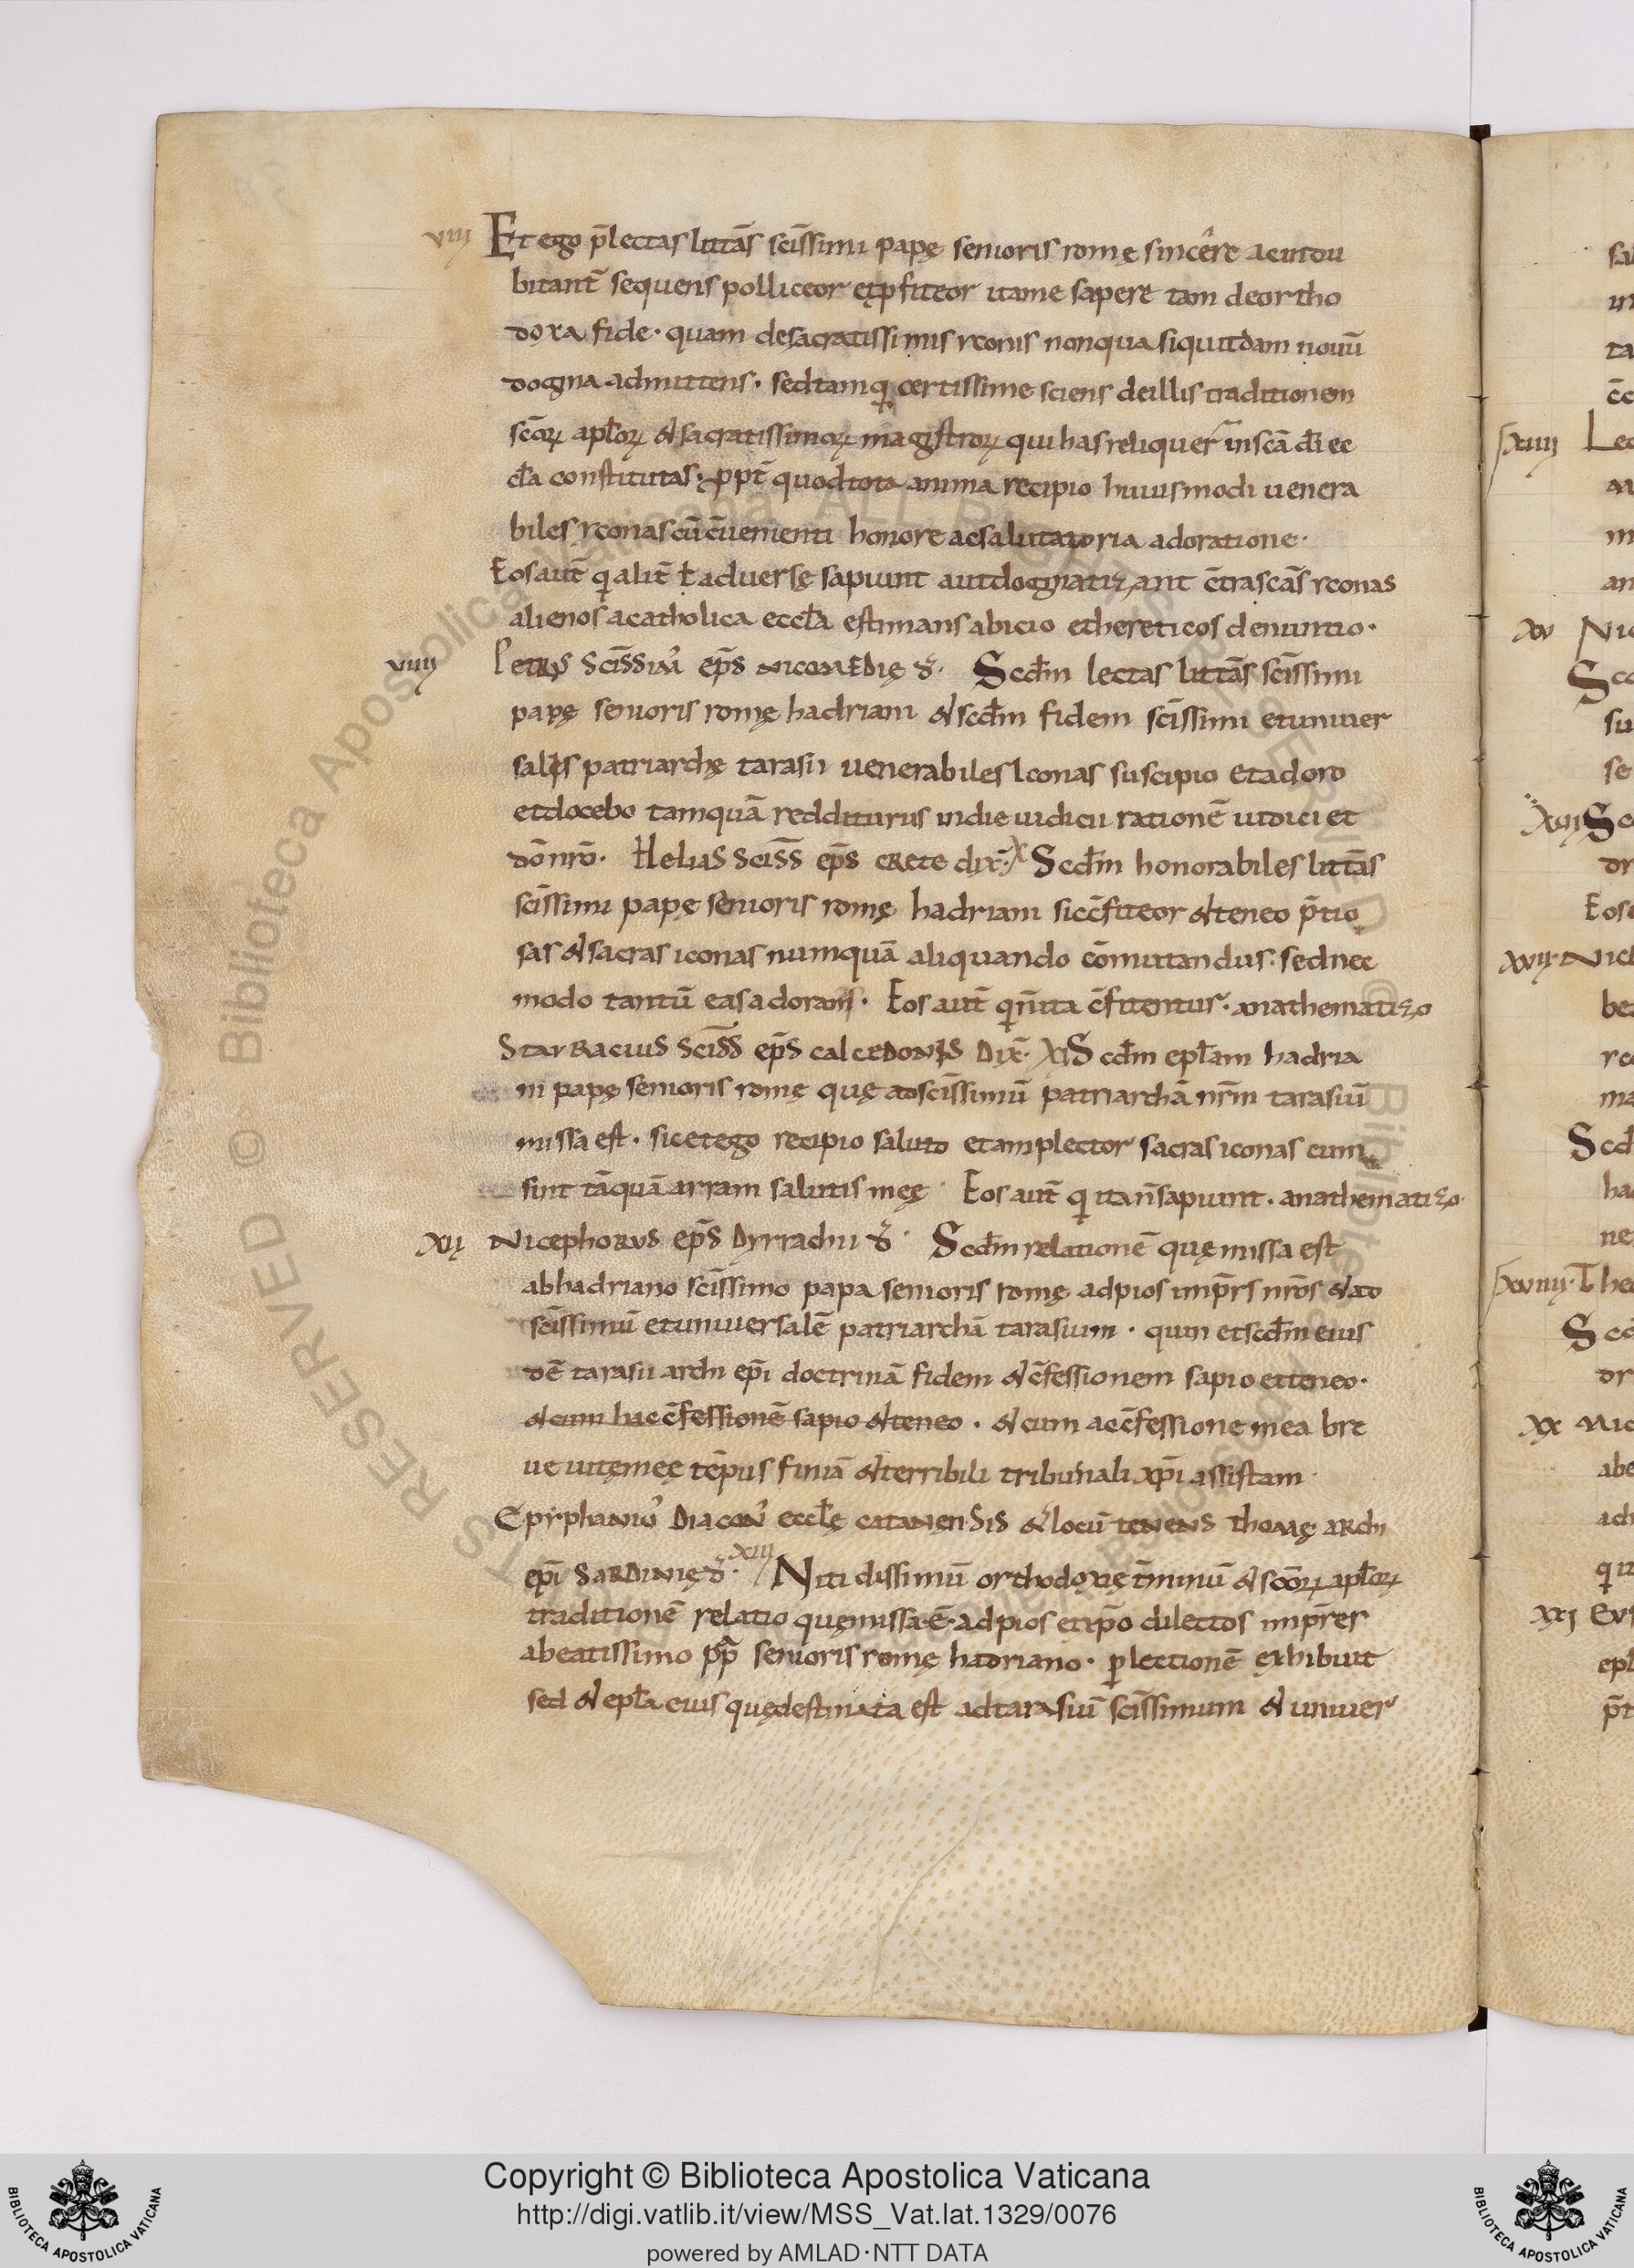 viii Et ego p̄lectas littās scīssimi papę senioris romę sincere acindu
bitant̄ sequens polliceor et ꝓfiteor itame sapere tam deortho
doxa fide· quam desacratissimis iconis nonqua siquiddam nouū
dogma admittens· sedtamq̄ certissime sciens deillis traditionem
scōꝝ apl̄oꝝ & sacratissimoꝝ magistroꝝ qui has reliquer̄ inscā d̄i ec
cl̄a constitutas· ꝓpt̄ quodtota anima recipio huiusmodi uenera
biles iconas cū c̄uenienti honore acsalutatoria adoratione·
Eosaut̄ qi alit̄ ł aduerse sapiunt autdogmatizant c̄trascās iconas
alienos acatholica eccl̄a estimans abicio ethereticos denuntio·
viiii Petrus scissim' ep̄s nicomedię d̄· Scd̄m lectas littās scīssimi
papę senioris romę hadriani & scd̄m fidem scīssimi etuniuer
salis patriarchę tarasii uenerabiles Iconas suscipio etadoro
etdocebo tamquā redditurus indie iudicii rationē iudici et
dōnrō· Helias sciss̄ ep̄s crete dix̄· x Scd̄m honorabiles littās
scīssimi papę senioris romę hadriani sicc̄fiteor & teneo p̄tio
sas & sacras iconas numquā aliquando cōmutandus· sednec
modo tantū easadorans· Eos aut̄ qi n̄ita c̄fitentur· anathematizo
Stauracius sciss̄ ep̄s calcedonis dix̄· xi Scd̄m epl̄am hadria
ni papę senioris romę quę adscīssimū patriarchā nr̄m tarasiū
missa est· sicetego recipio saluto etamplector sacras iconas cum
sint tāquā arram salutis meę· Eos aut̄ qi itan̄sapiunt· anathematizo·
xii Nicephorus ep̄s dyrrachii d̄· Scd̄m relationē quę missa est
abhadriano scīssimo papa senioris romę adpios imp̄rs nr̄os & ad
scīssimū etuniuersalē patriarchā tarasium· quin etscd̄m eius
dē tarasii archi ep̄i doctrinā fidem & c̄fessionem sapio etteneo·
& cum hac c̄fessionē sapio & teneo· & cum ac c̄fessione mea bre
ue uitęmeę tēpus finiā & terribili tribunali xp̄i assistam·
Epyphaniu' diacon' eccl̄ę catanensis & locū tenens thomę archi
ep̄i sardinię d̄· xiii Nitidissimū orthodoxię t̄minū & scōꝝ apl̄oꝝ
traditionē relatio quęmissa·ē· adpios etxp̄o dilectos imp̄rer
abeatissimo pp̄ senioris romę hadriano· ꝑlectionē exhibuit
sed & epl̄a eius quędestinata est adtarasiū scīssimum & uniuer
xiiii Lec
xv Nic
Scd
xvi Sc
Eos
xvii· Nic
Scd
xviiii· The
Scd
xx Nic
xxi Eus
Copyright © Biblioteca Apostolica Vaticana
http://digi.vatlib.it/view/MSS_Vat.lat.1329/0076
powered by AMLAD·NTT DATA
BIBLIOTECA APOSTOLICA VATICANA
BIBLIOTECA APOSTOLICA VATICANA